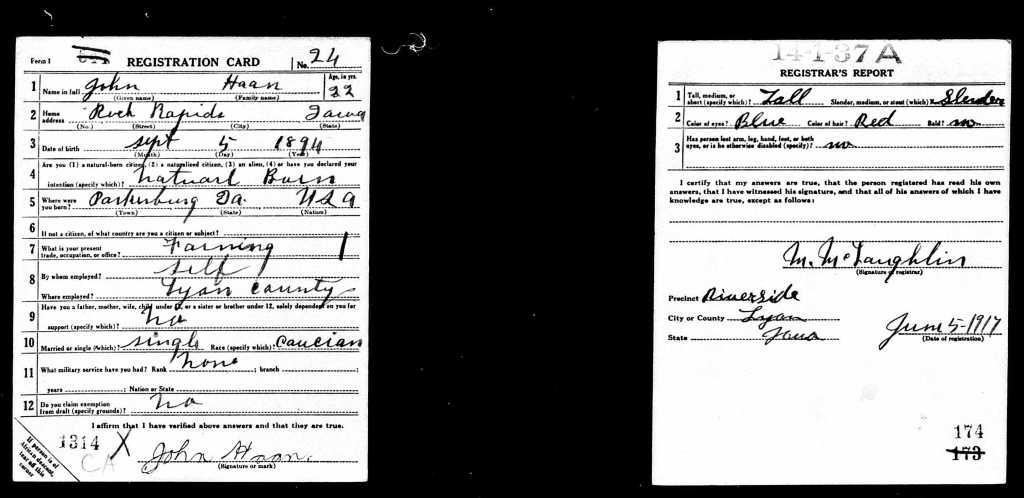 Form 1 REGISTRATION CARD No. 24
1 Name in full John Haan Age, in yrs. 22
(Given name) (Family name)
2 Home address Rock Rapids Iowa
(No.) (Street) (City) (State)
3 Date of birth Sept 5 1894
(Month) (Day) (Year)
4 Are you (1) a natural-born citizen, (2) a naturalized citizen, (3) an alien, (4) or have you declared your
intention (specify which)? natuarl Born
5 Where were you born? Parkersburg Ia. USA
(Town) (State) (Nation)
6 If not a citizen, of what country are you a citizen or subject?
7 What is your present trade, occupation, or office? Farming 1
8 By whom employed? self
Where employed? Lyon County
9 Have you a father, mother, wife, child under 12, or a sister or brother under 12, solely dependent on you for
support (specify which)? no
10 Married or single (which)? single Race (specify which)? Caucian
11 What military service have you had? Rank none ; branch ;
years ; Nation or State
12 Do you claim exemption from draft (specify grounds)? no
I affirm that I have verified above answers and that they are true.
1314 X
CA
John Haan.
(Signature or mark)
If person is of African descent, tear off this corner
14-1-37 A
REGISTRAR'S REPORT
1 Tall, medium, or short (specify which)? Tall Slender, medium, or stout (which)? Slender
2 Color of eyes? Blue Color of hair? Red Bald? no
3 Has person lost arm, leg, hand, foot, or both eyes, or is he otherwise disabled (specify)? no
I certify that my answers are true, that the person registered has read his own
answers, that I have witnessed his signature, and that all of his answers of which I have
knowledge are true, except as follows:
M. McLaughlin
(Signature of registrar)
Precinct Riverside
City or County Lyon
State Iowa
June 5-1917
(Date of registration)
174
173